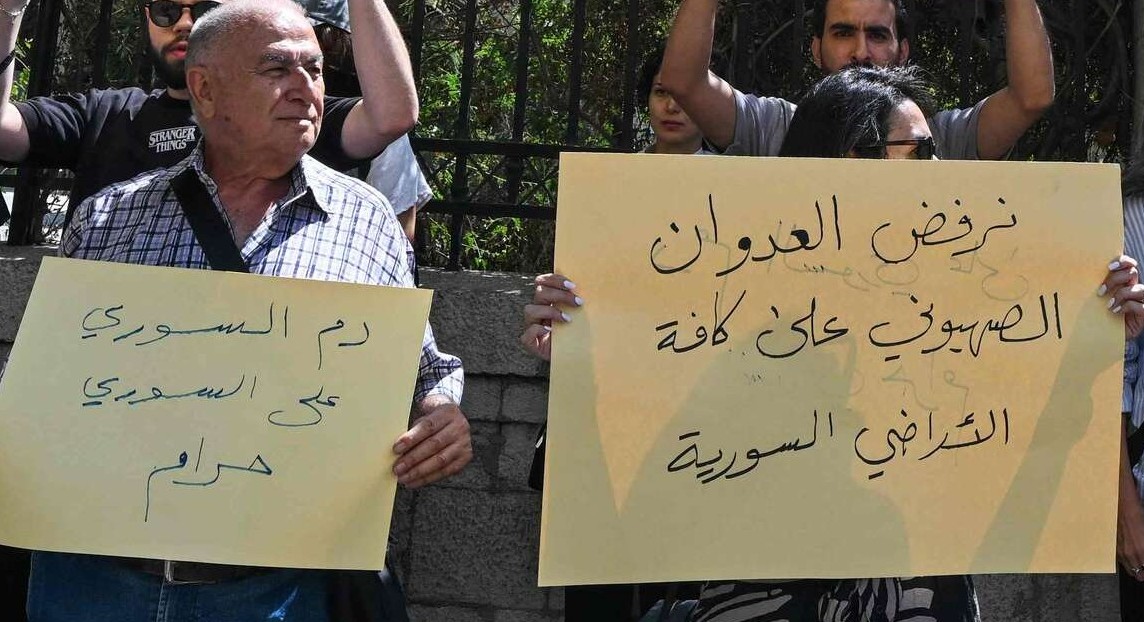 STRANGER
THINGS
دم السوري
على السوري
حرام
نرفض العدوان
الصهيوني على كافة
الأراضي السورية